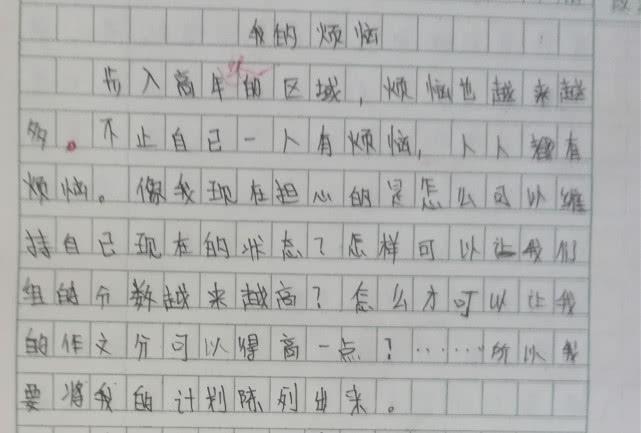 我的烦恼
步入高年级的区域，烦恼也越来越
多。不止自己一人有烦恼，人人都有
烦恼。像我现在担心的是怎么可以维
持自己现在的状态？怎样可以让我们
组的分数越来越高？怎么才可以让我
的作文分可以得高一点？……所以我
要将我的计划陈列出来。